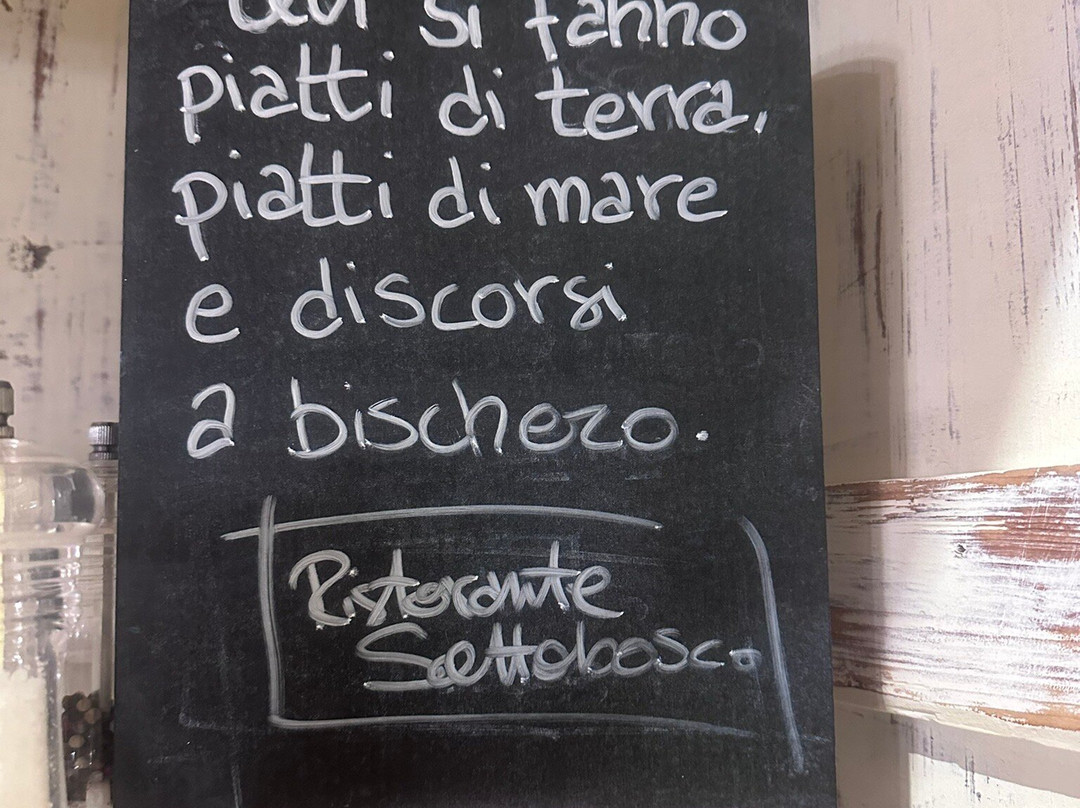 si fanno
piatti di terra,
piatti di mare
e discorsi
a bischero.
Ristorante
Sottobosco